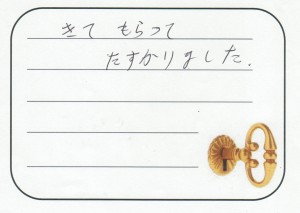 きて もらって
たすかりました.